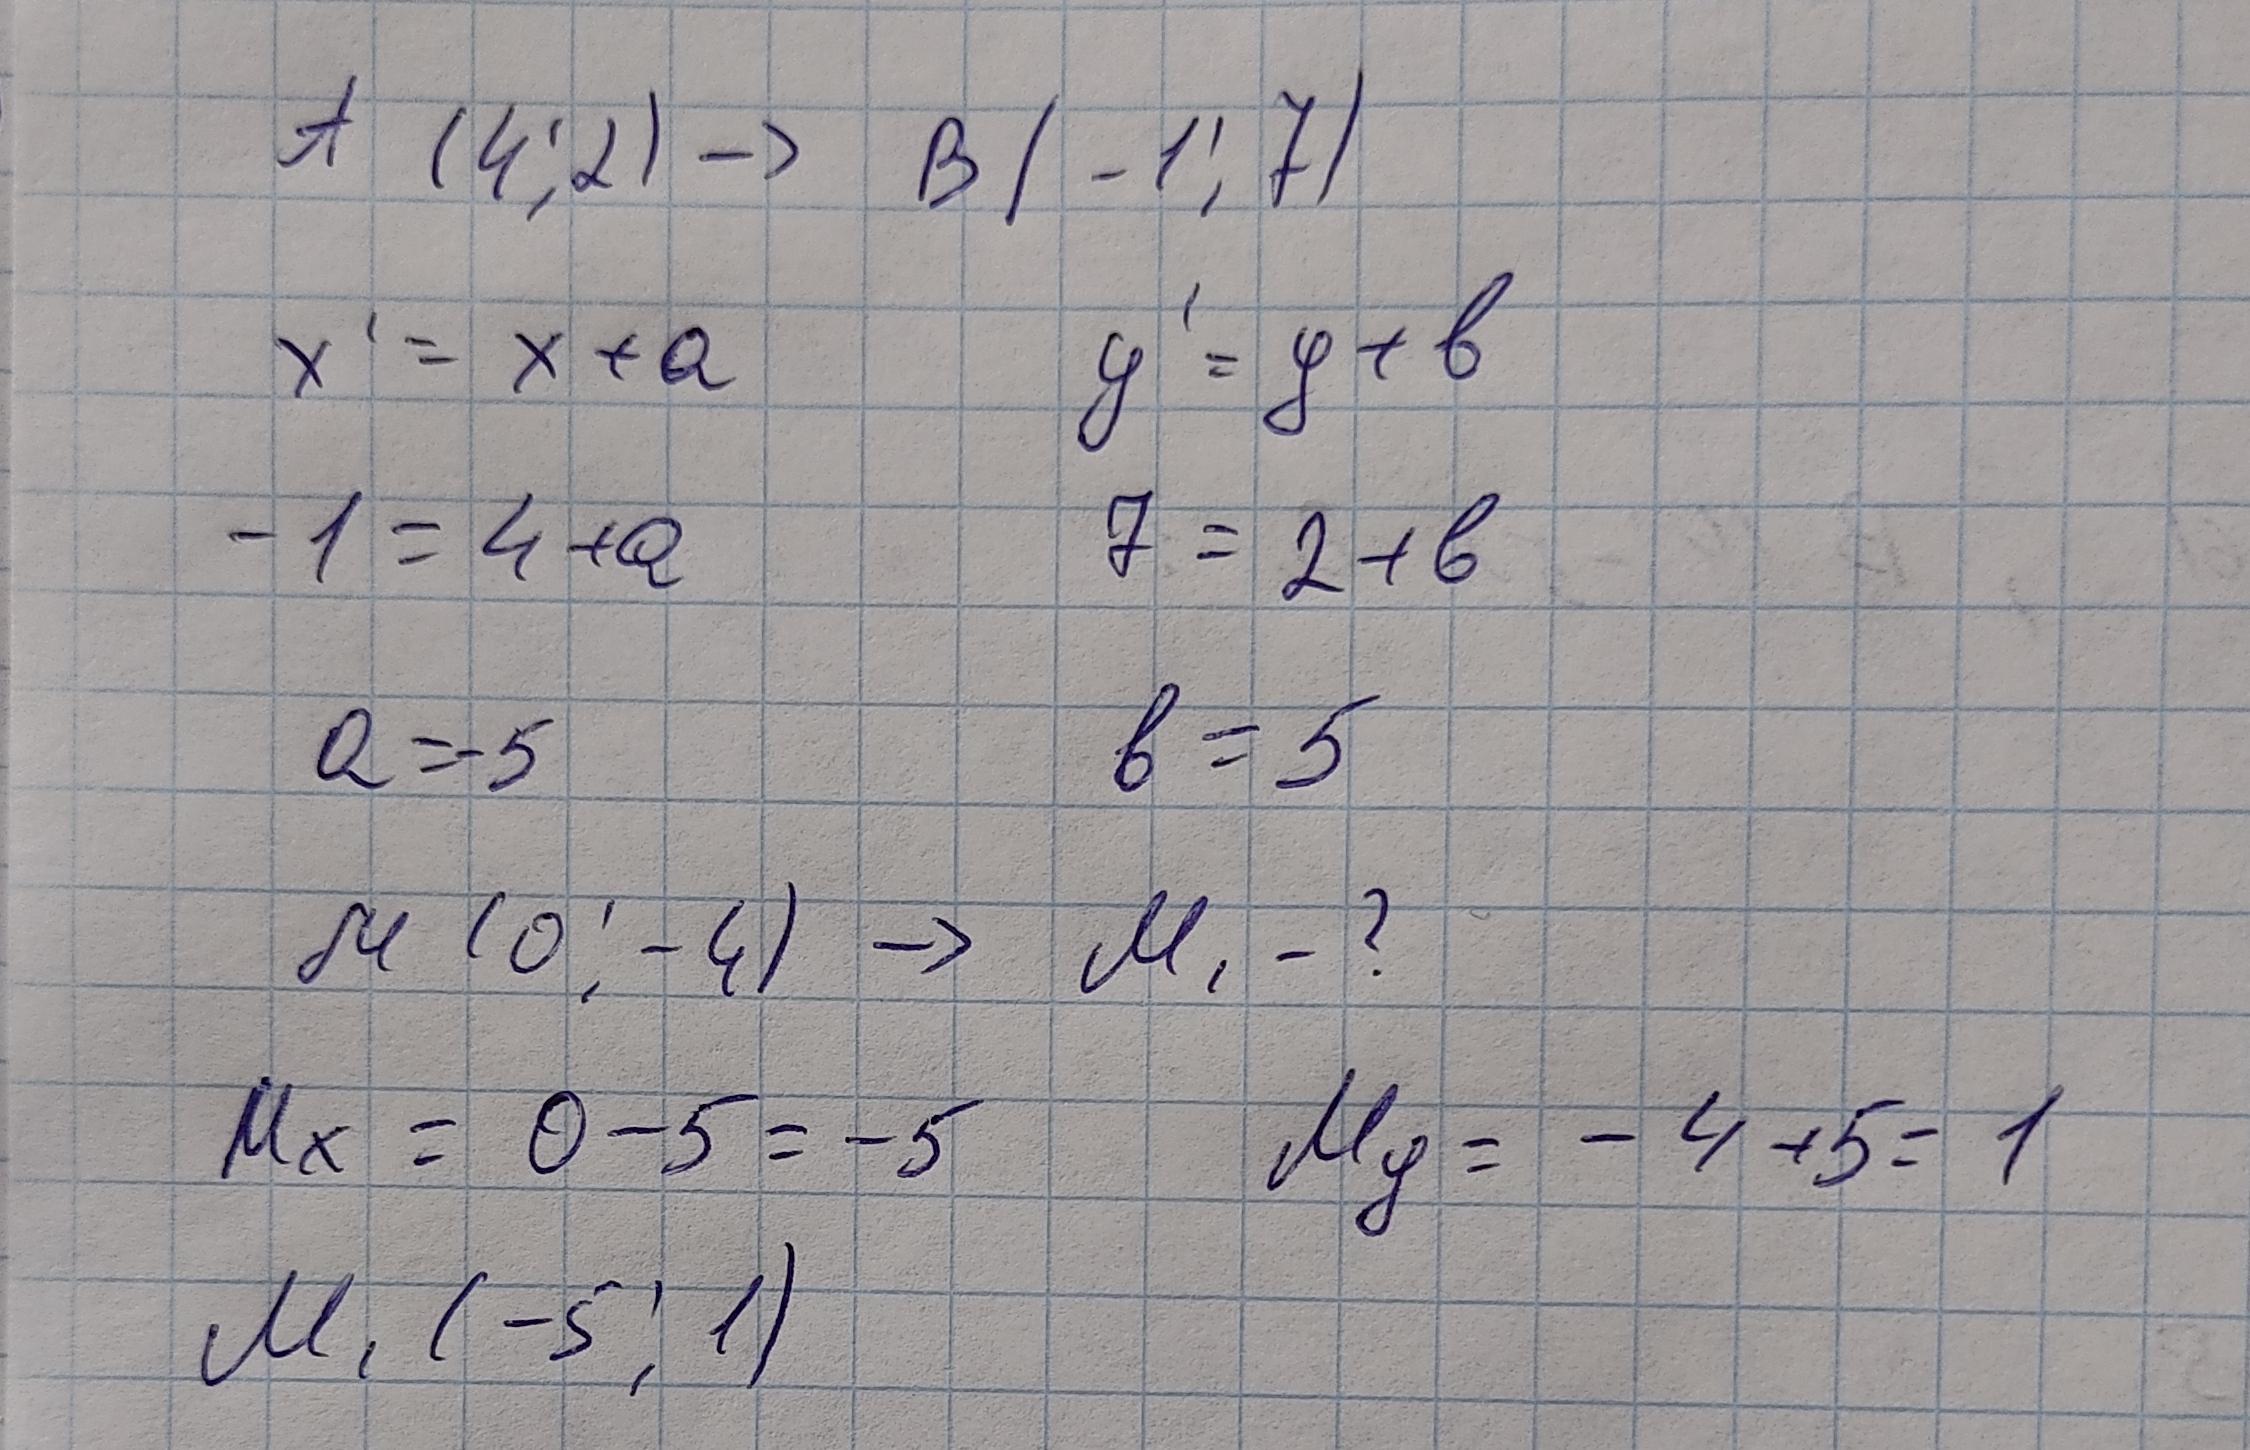 A (4; 2) -> B (-1; 7)
x' = x + a y' = y + b
-1 = 4 + a 7 = 2 + b
a = -5 b = 5
M (0; -4) -> M₁ - ?
Mx = 0 - 5 = -5 My = -4 + 5 = 1
M₁ (-5; 1)